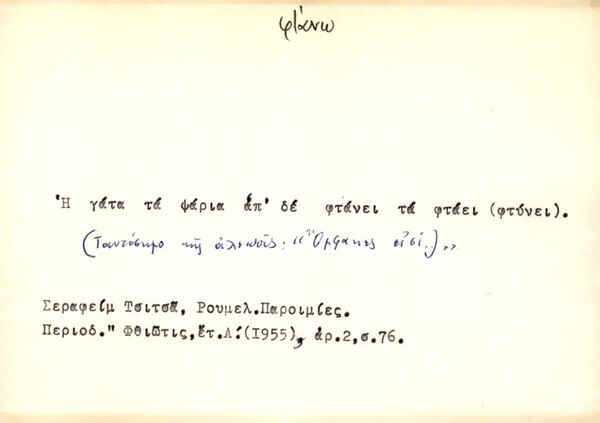 φτάνω
Ἡ γάτα τά ψάρια ἀπ' δέ φτάνει τά φτάει (φτύνει).
(Ταυτόσημο τῆς ἀλεποῦς: "Ὄμφακες εἰσί.)"
Σεραφείμ Τσιτσᾶ, Ρουμελ.Παροιμίες.
Περιοδ." Φθιῶτις,ἔτ.Α΄(1955), ἀρ.2,σ.76.